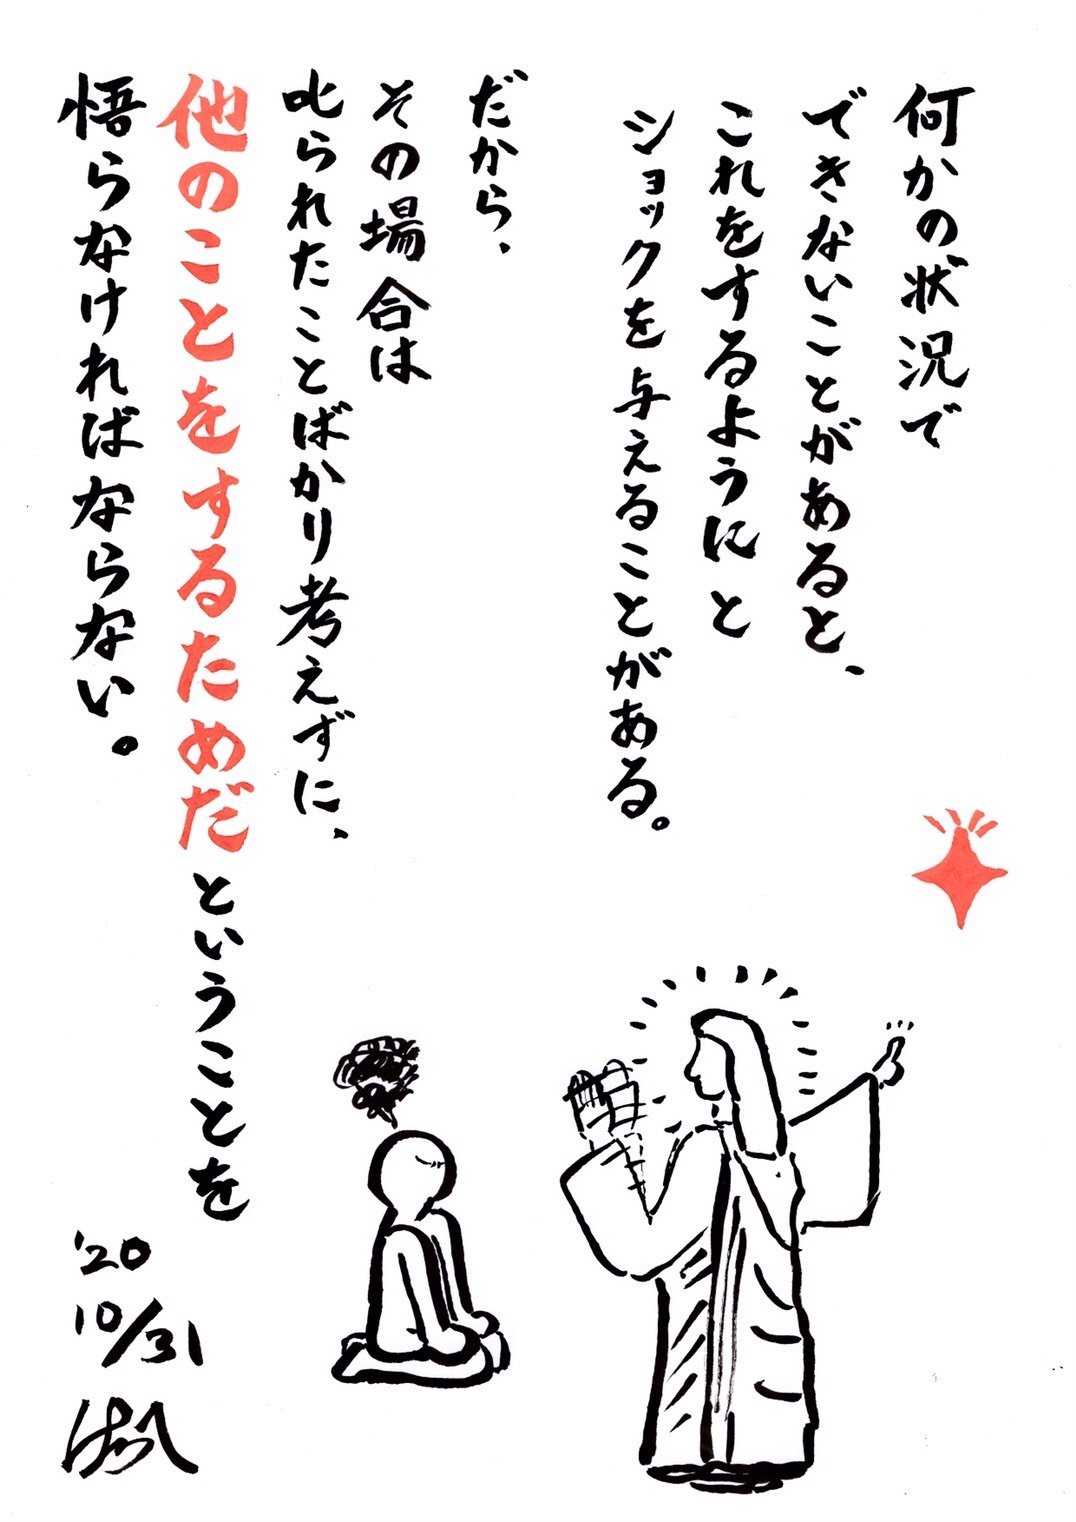 何かの状況で
できないことがあると、
これをするようにと
ショックを与えることがある。
だから、
その場合は
叱られたことばかり考えずに、
他のことをするためだということを
悟らなければならない。
'20
10/31